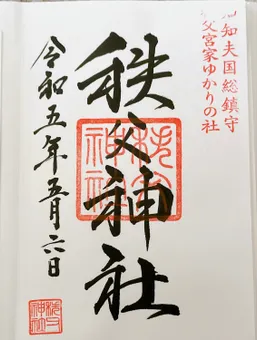 知知夫国総鎮守
秩父宮家ゆかりの社
秩父神社
令和五年五月六日
秩父
神社